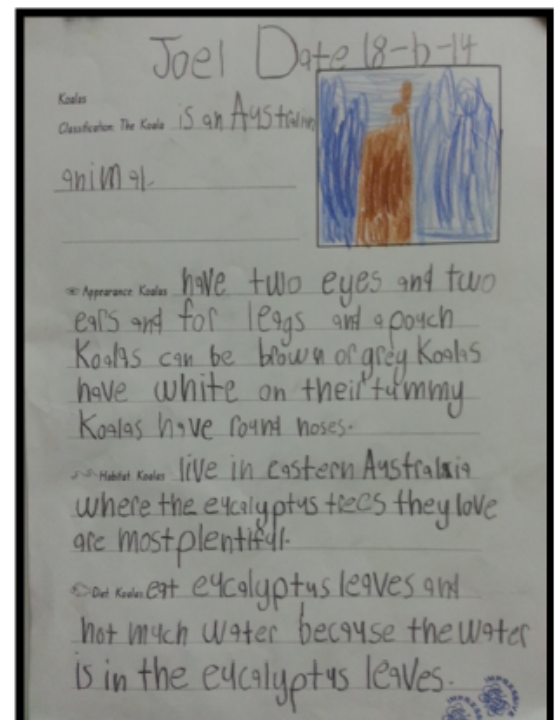 Joel Date 18-6-14
Koalas
Classification The Koala is an Australian
animal.
Appearance Koalas have two eyes and two
ears and for leags and a pouch
Koalas can be brown or grey Koalas
have white on their tummy
Koalas have round noses.
Habitat Koalas live in eastern Australaia
where the eucalyptus trees they love
are most plentiful.
Diet Koalas eat eucalyptus leaves and
not much water because the water
is in the eucalyptus leaves.